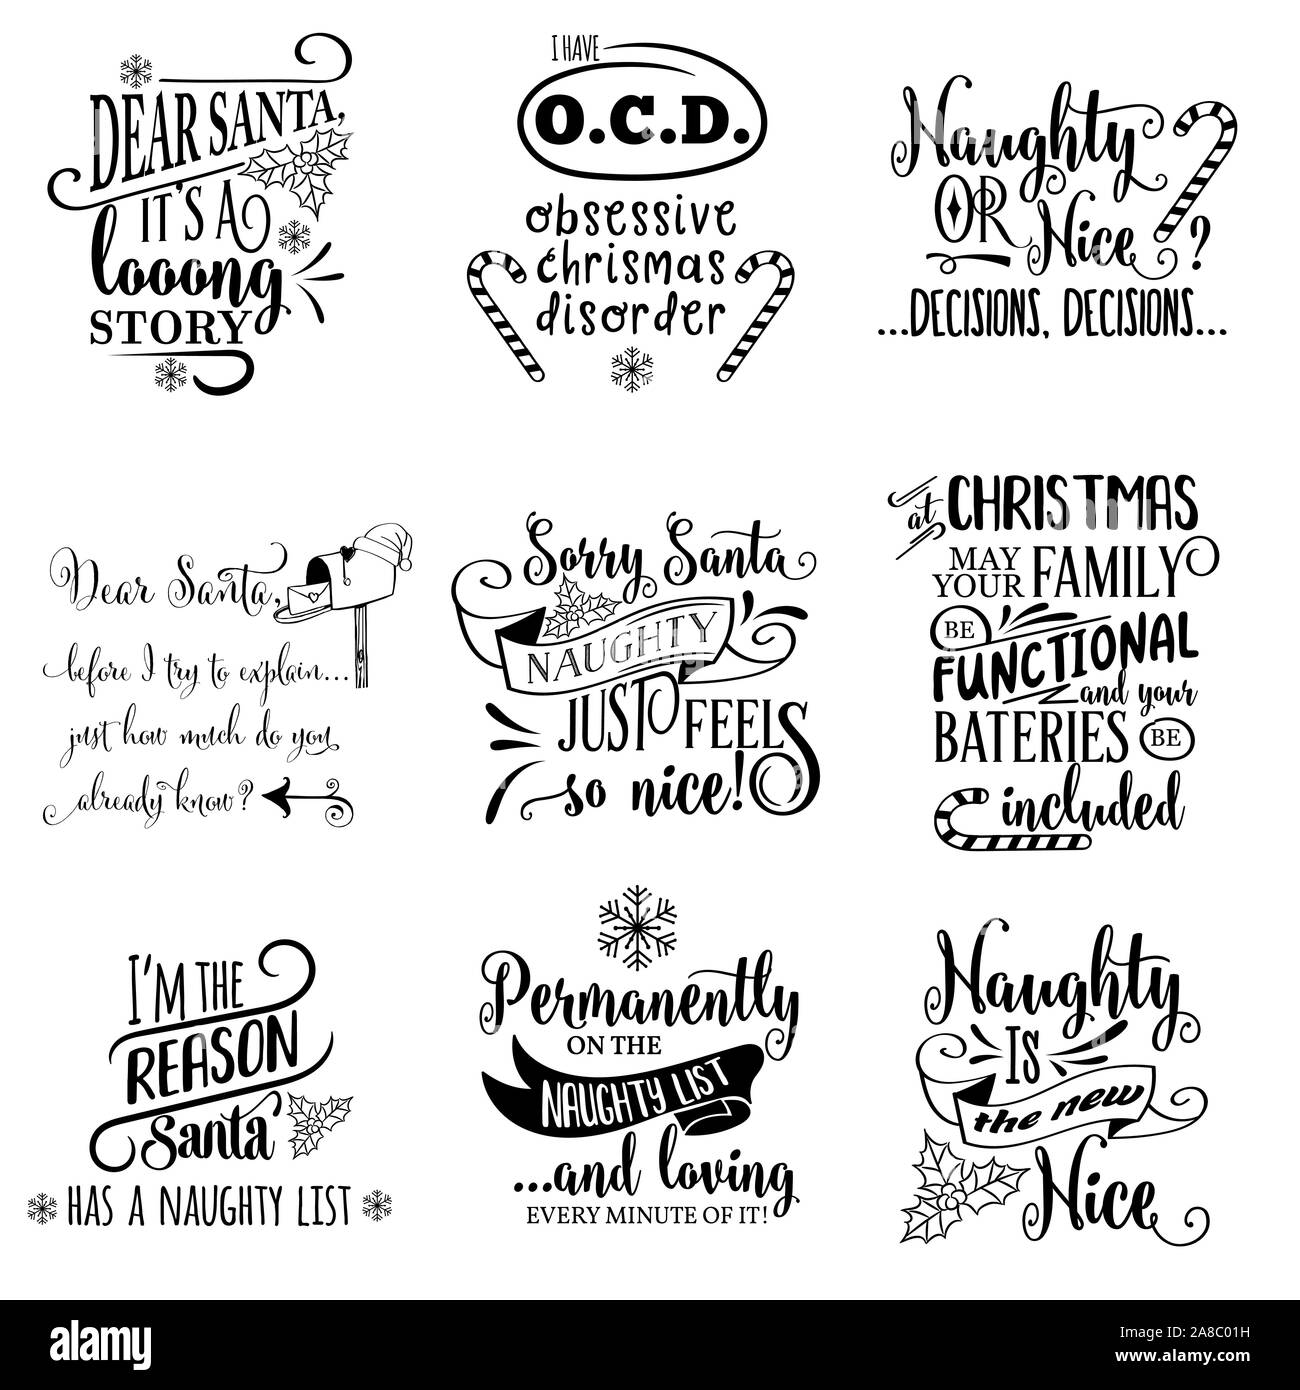 DEAR SANTA,
IT'S A
looong
STORY
I HAVE
O.C.D.
obsessive
chrismas
disorder
Naughty
OR Nice?
...DECISIONS, DECISIONS...
Dear Santa,
before I try to explain...
just how much do you
already know?
Sorry Santa
NAUGHTY
JUST FEELS
so nice!
at CHRISTMAS
MAY YOUR FAMILY
BE
FUNCTIONAL
and your
BATERIES BE
included
I'M THE
REASON
Santa
HAS A NAUGHTY LIST
Permanently
ON THE
NAUGHTY LIST
...and loving
EVERY MINUTE OF IT!
Naughty
IS
the new
Nice
alamy
Image ID: 2A8C01H
www.alamy.com